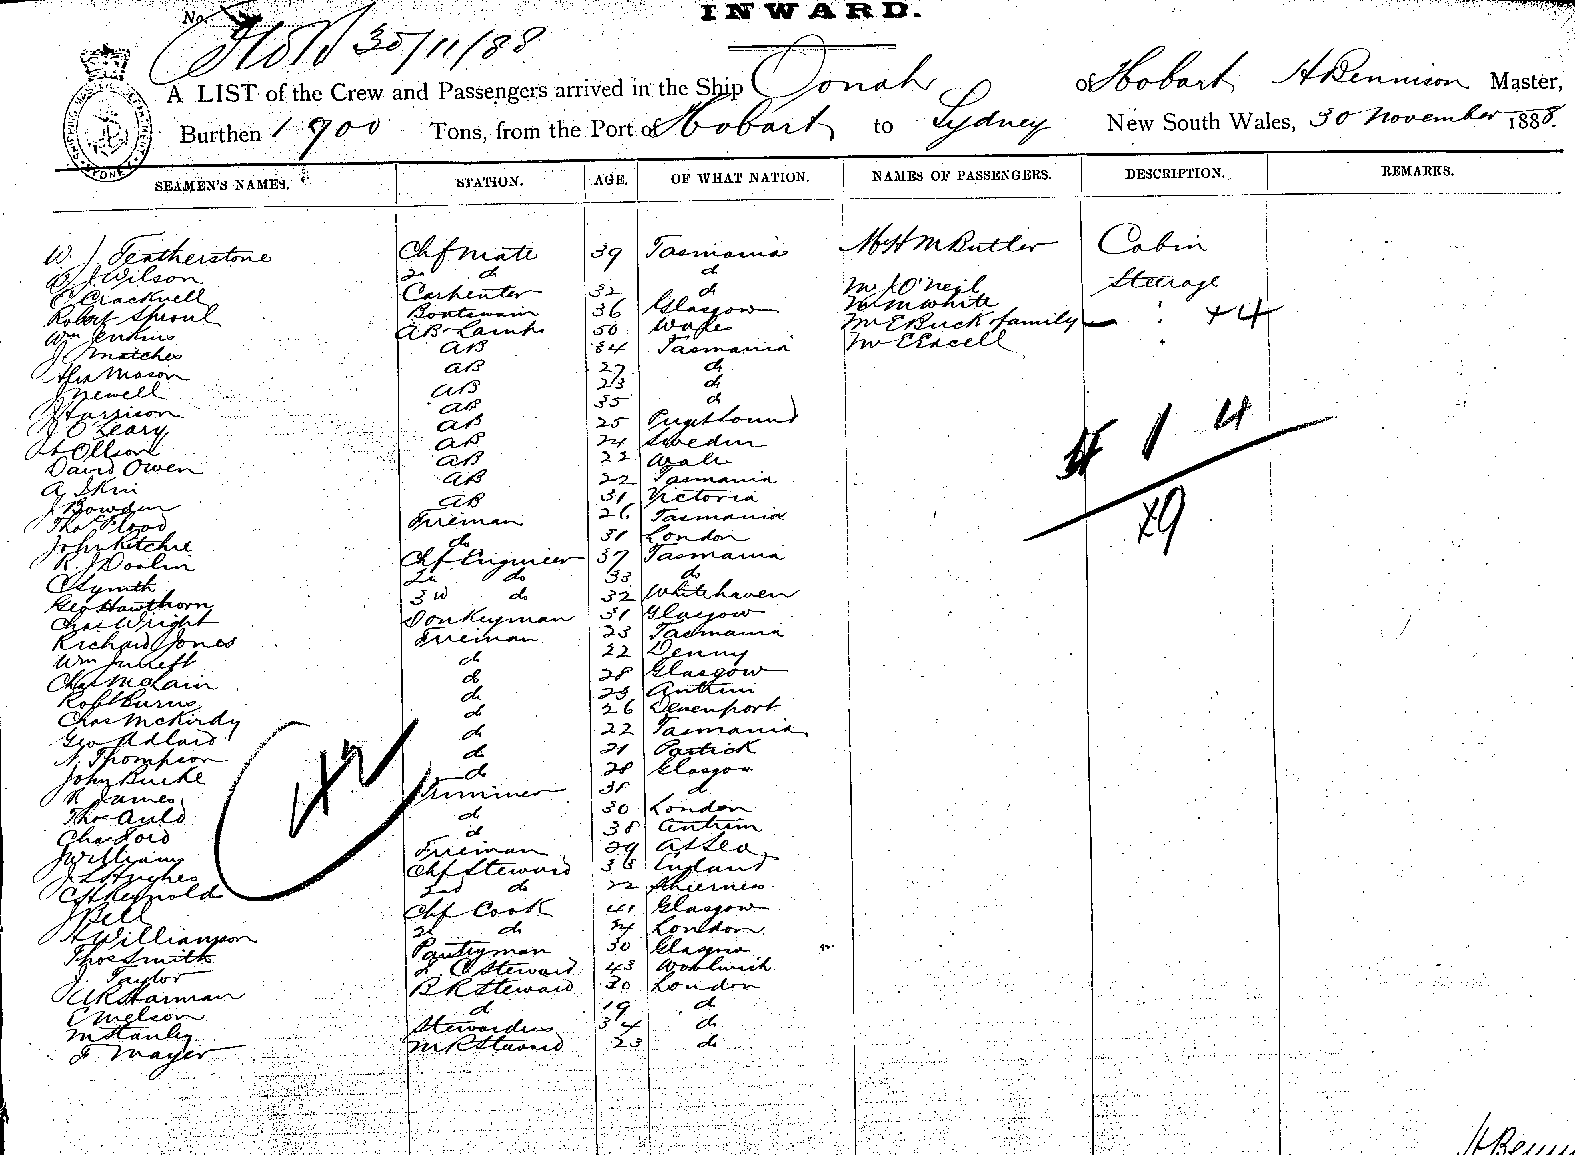 No.
INWARD.
30/11/88
A LIST of the Crew and Passengers arrived in the Ship Oonah of Hobart H Bennison Master,
Burthen 1900 Tons, from the Port of Hobart to Sydney New South Wales, 30 November 1888.
SEAMEN'S NAMES. STATION. AGE. OF WHAT NATION. NAMES OF PASSENGERS. DESCRIPTION. REMARKS.
W J Featherstone Chf Mate 39 Tasmania Mr H M Butler Cabin
B J Wilson 2n d d
C Cracknell Carpenter 32 d Mr J O'Neil Steerage
Robert Sproul Boatswain 36 Glasgow Mr M White
Wm Jenkins AB Lamps 50 Wales Mr E Buck family " +4
J Matches AB 34 Tasmania Mr E Excell "
Mason AB 27 d
J Newell AB 23 d
J Harrison AB 35 d
J O'Leary AB 25 Puget Sound
A Ollson AB 24 Sweden
David Owen AB 22 Wales
A Skin AB 22 Tasmania
J Bowden AB 31 Victoria
Thos Flood Fireman 26 Tasmania
John Ritchie do 31 London
R J Doolin Chf Engineer 37 Tasmania
C Smyth 2n do 33 do
Geo Hawthorn 3rd do 32 Whitehaven
Chas Wright Donkeyman 31 Glasgow
Richard Jones Fireman 23 Tasmania
Wm d 22 Denny
Chas McLain d 28 Glasgow
Robt Burns d 23 Antrim
Chas McKirdy d 26 Devenport
Geo Adlard d 22 Tasmania
N Thompson d 21 Partick
John Burke d 28 Glasgow
R James Trimmer 38 d
Thos Auld d 30 London
Chas Ford d 38 Antrim
J Williams Fireman 29 At Sea
J S Hughes Chf Steward 36 England
2nd do 22 Sheerness
J Bell Chf Cook 41 Glasgow
H Williamson 2n do 24 London
Thos Smith Pantryman 30 Glasgow
J. Taylor 2 C Steward 43 Woolwich
A R Harman B R Steward 30 London
C Nelson d 19 d
M Stanley Stewardess 34 d
J Mayer M R Steward 23 d
1 4
+9
H Benn